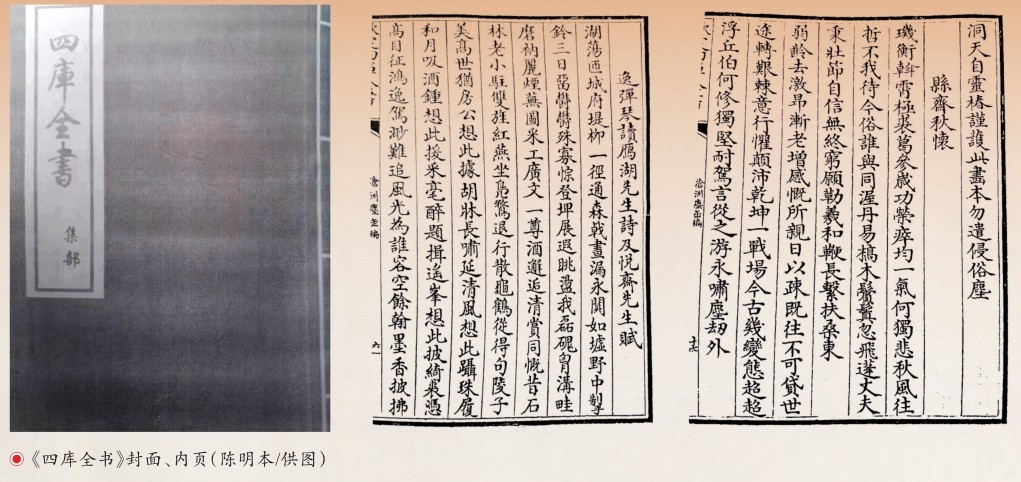 四庫全書
集部
逸彈琴讀鴈湖先生詩及悅齋先生賦
湖蕩西城府堤柳一徑通森戟畫漏永閴如墟野中掣
鈴三日曷欝欝殊寡悰登坪展遐眺盪我磊磈胷溝畦
磨衲麗煙蕪圖米工廣文一尊酒邂逅清賞同慨昔石
林老小駐雙旌紅燕坐鳧鶩退行散龜鶴從得句陵子
美高世猶房公想此據胡牀長嘯延清風想此躡珠履
和月吸酒鍾想此援釆毫醉題揖遙峯想此披綺裘憑
高目征鴻逸駕渺難追風光為誰容空餘翰墨香披拂
滄洲塵缶編
洞天自靈椿謹護此畫本勿遣侵俗塵
縣齋秋懷
璣衡斡霄極裘葛參歲功榮瘁均一氣何獨悲秋風往
哲不我待今俗誰與同渥丹易槁木鬒鬒忽飛蓬丈夫
秉壯節自信無終窮願勒羲和鞭長繫扶桑東
弱齡去激昂漸老增感慨所親日以疎既往不可貸世
途轉艱棘意行懼顛沛乾坤一戰場今古幾變態超超
浮丘伯何修獨堅耐駕言從之游永嘯塵刼外
滄洲塵缶編
《四库全书》封面、内页(陈明本/供图)